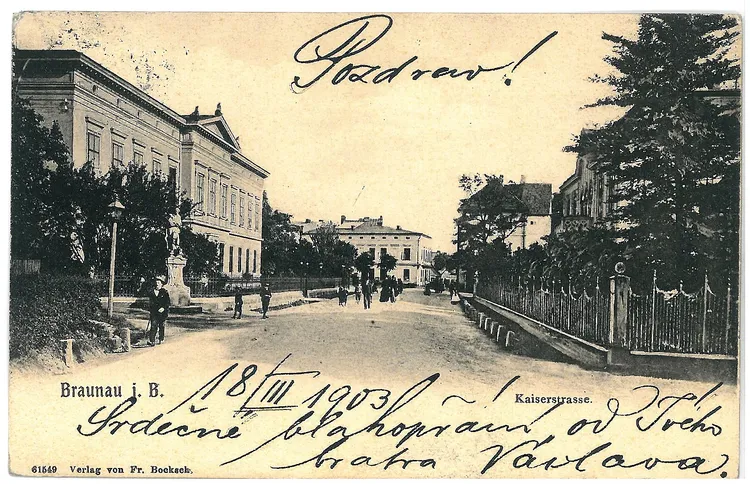 Pozdrav!
Braunau i. B.
18/III 1903
Kaiserstrasse.
Srdečné blahopřání od Tvého
bratra Václava.
61549 Verlag von Fr. Bocksch.